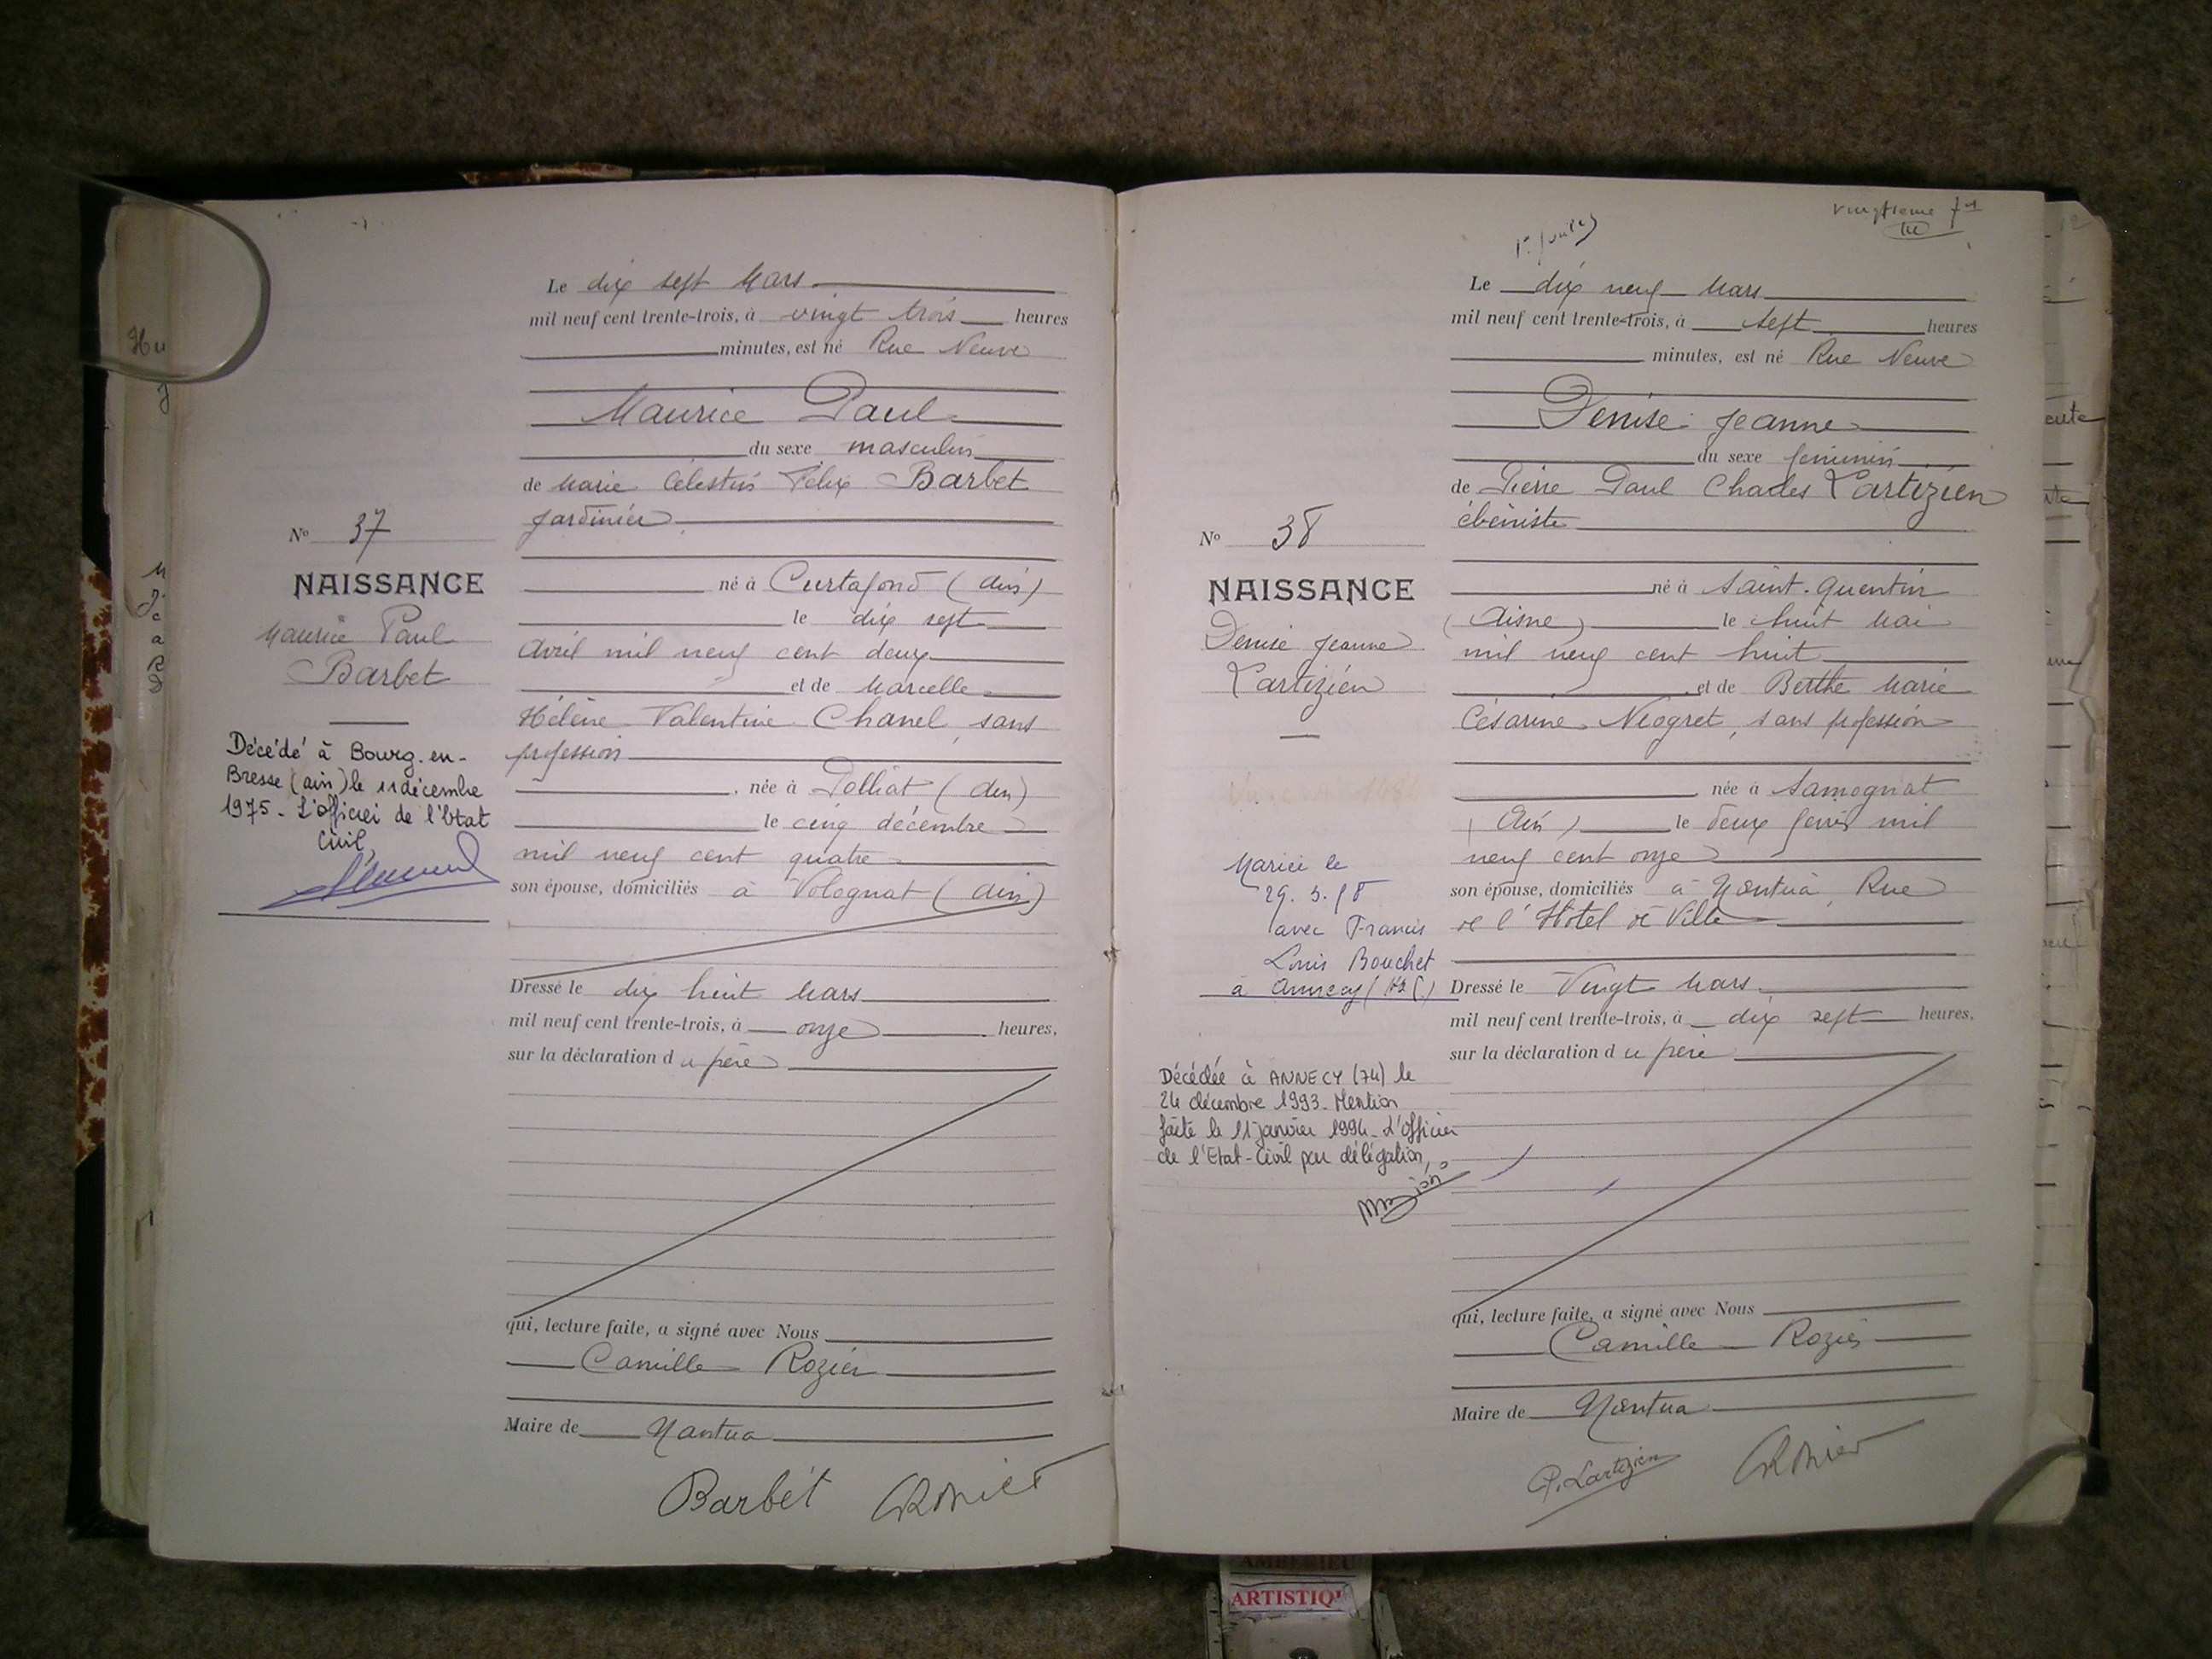 Le dix sept Mars
mil neuf cent trente-trois, à vingt trois heures
minutes, est né Rue Neuve
Maurice Paul
du sexe masculin
de Marie Célestin Félix Barbet
jardinier
né à Curtafond (Ain)
le dix sept
Avril mil neuf cent deux
et de Marcelle
Hélène Valentine Chanel, sans
profession
née à Polliat (Ain)
le cinq décembre
mil neuf cent quatre
son épouse, domiciliés à Volognat (Ain)
Dressé le dix huit Mars
mil neuf cent trente-trois, à onze heures,
sur la déclaration du père
qui, lecture faite, a signé avec Nous
Camille Rozier
Maire de Nantua
Barbet
No 37
NAISSANCE
Maurice Paul
Barbet
Décédé à Bourg-en-
Bresse (ain) le 11 décembre
1975 - L'officier de l'Etat
Civil,
vingtième
Le dix neuf Mars
mil neuf cent trente-trois, à sept heures
minutes, est né Rue Neuve
Denise Jeanne
du sexe féminin
de Pierre Paul Charles Lartizien
ébéniste
né à Saint-Quentin
(Aisne) le huit Mai
mil neuf cent huit
et de Berthe Marie
Césarine Neogret, sans profession
née à Samognat
(Ain) le deux février mil
neuf cent onze
son épouse, domiciliés à Nantua, Rue
de l'Hotel de Ville
Dressé le Vingt Mars
mil neuf cent trente-trois, à dix sept heures,
sur la déclaration du père
qui, lecture faite, a signé avec Nous
Camille Rozier
Maire de Nantua
P. Lartizien
No 38
NAISSANCE
Denise Jeanne
Lartizien
Mariée le
avec Francis
Louis Bouchet
à Annecy
Décédée à ANNECY (74) le
24 décembre 1993. Mention
faite le 11 janvier 1994. L'officier
de l'Etat-Civil par délégation,
ARTISTIQ